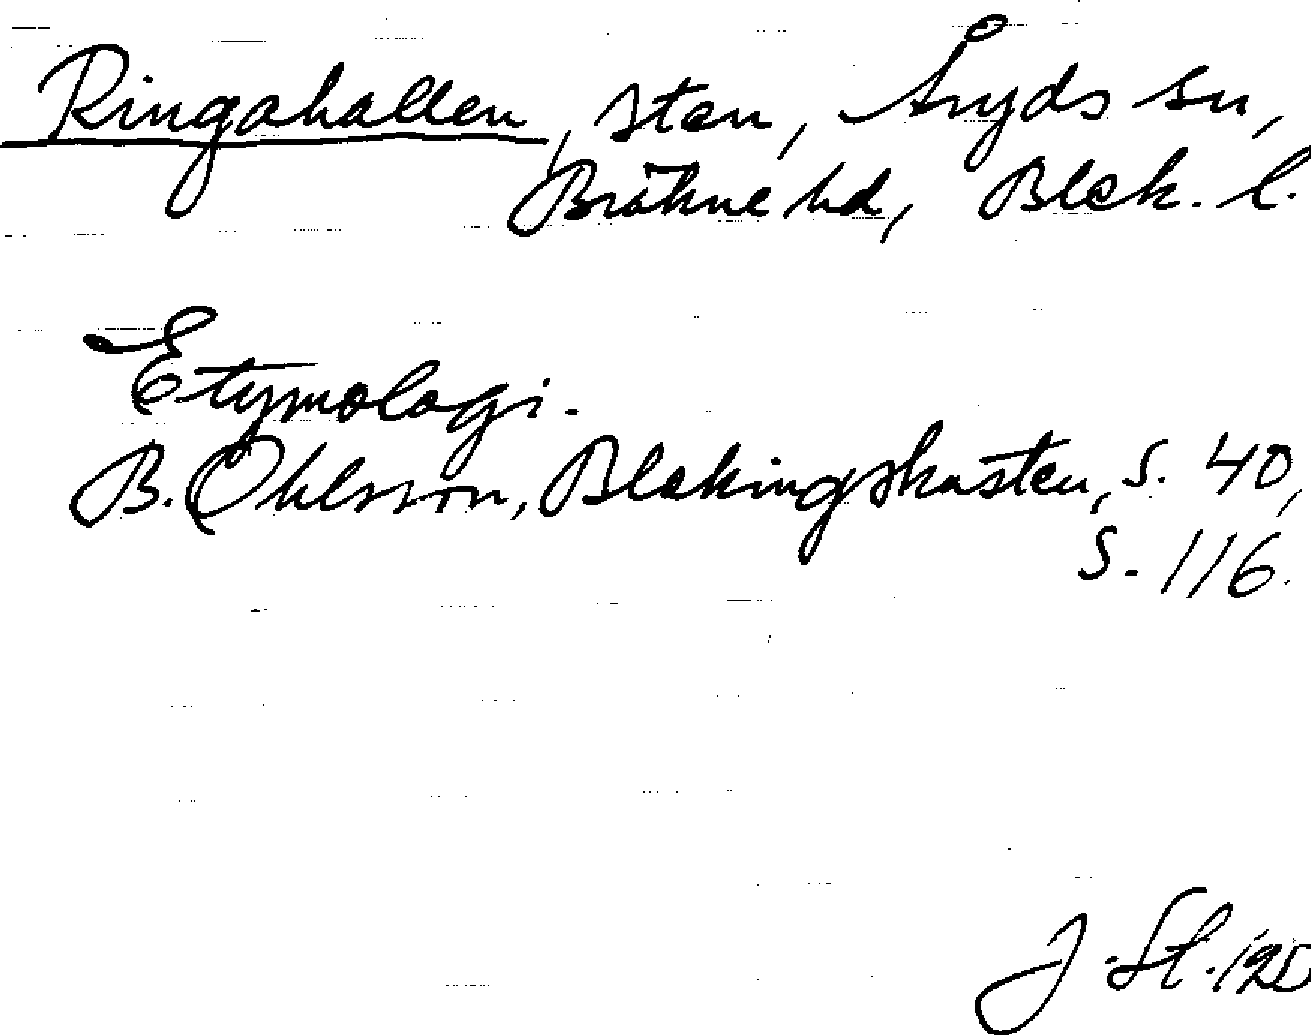 Ringahallen, sten, Åryds sn,
Bräkne hd, Blek. l.
Etymologi.
B. Ohlsson, Blekingskusten, s. 40,
s. 116.
J. St.